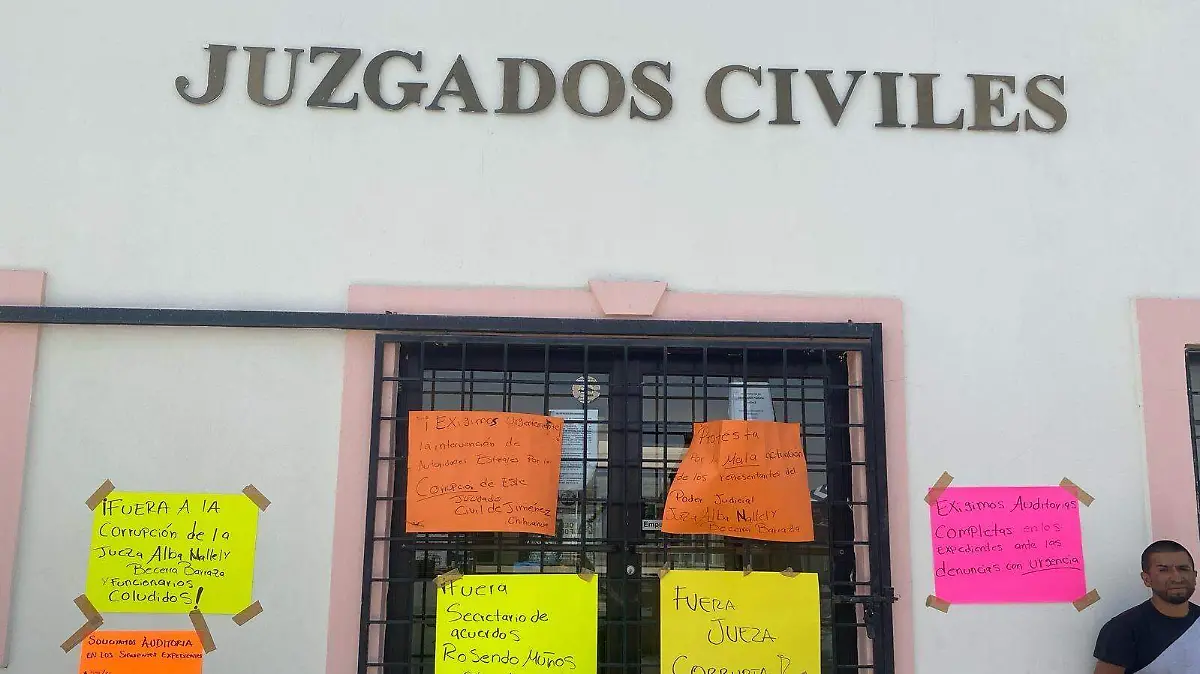 JUZGADOS CIVILES
¡EXIGIMOS Urgentemente
la intervención de
Autoridades Estatales Por la
Corrupcion de Este
Juzgado
Civil de Jiménez
Chihuahua
Protesta
Por la Mala actuación
de los representantes del
Poder Judicial
Jueza Alba Nallely
Becerra Barraza
¡FUERA A LA
Corrupción de la
Jueza Alba Nallely
Becerra Barraza
Y Funcionarios
Coludidos!
EXIGIMOS AUDITORIAS
COMPLETAS en los
EXPEDIENTES ante las
denuncias con urgencia
¡Fuera
Secretario de
acuerdos
Rosendo Muños
FUERA
JUEZA
CORRUPTA
SOLICITAMOS AUDITORIA
EN LOS SIGUIENTES EXPEDIENTES